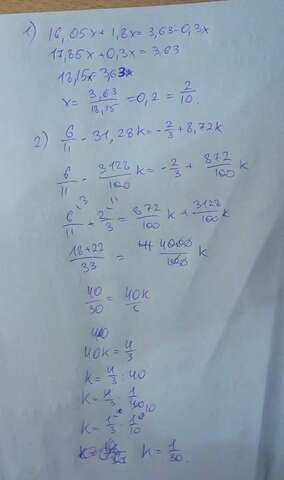 1) 16,05x + 1,8x = 3,63 - 0,3x
17,85x + 0,3x = 3,63
18,15x = 3,63
x = 3,63/18,15 = 0,2 = 2/10.
2) 6/11 - 31,28k = -2/3 + 8,72k
6/11 - 3128/100 k = -2/3 + 872/100 k
6/11 + 2/3 = 872/100 k + 3128/100 k
18+22/33 = 4000/100 k
40/30 = 40k
40k = 4/3
k = 4/3 : 40
k = 4/3 · 1/40 10
k = 1/3 · 1/10
k = 1/30.